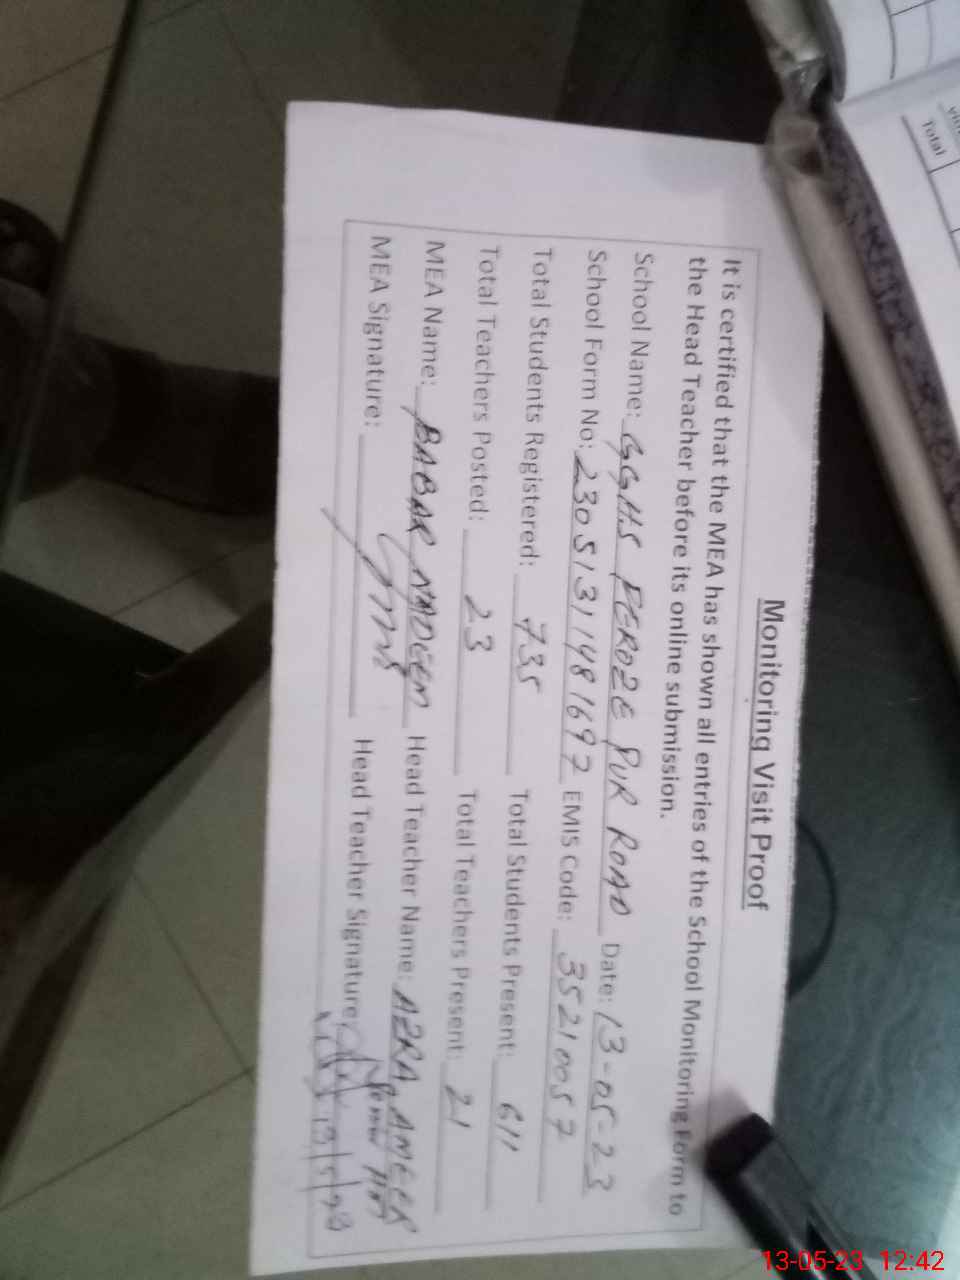 Monitoring Visit Proof
It is certified that the MEA has shown all entries of the School Monitoring Form to
the Head Teacher before its online submission.
School Name: GGHS FEROZE PUR ROAD Date: 13-05-23
School Form No: 23051311481697 EMIS Code: 35210057
Total Students Registered: 735 Total Students Present: 611
Total Teachers Posted: 23 Total Teachers Present: 21
MEA Name: BABAR NADEEM Head Teacher Name: AZRA AMEER
MEA Signature: Head Teacher Signature: 13/5/23
Total
13-05-23 12:42